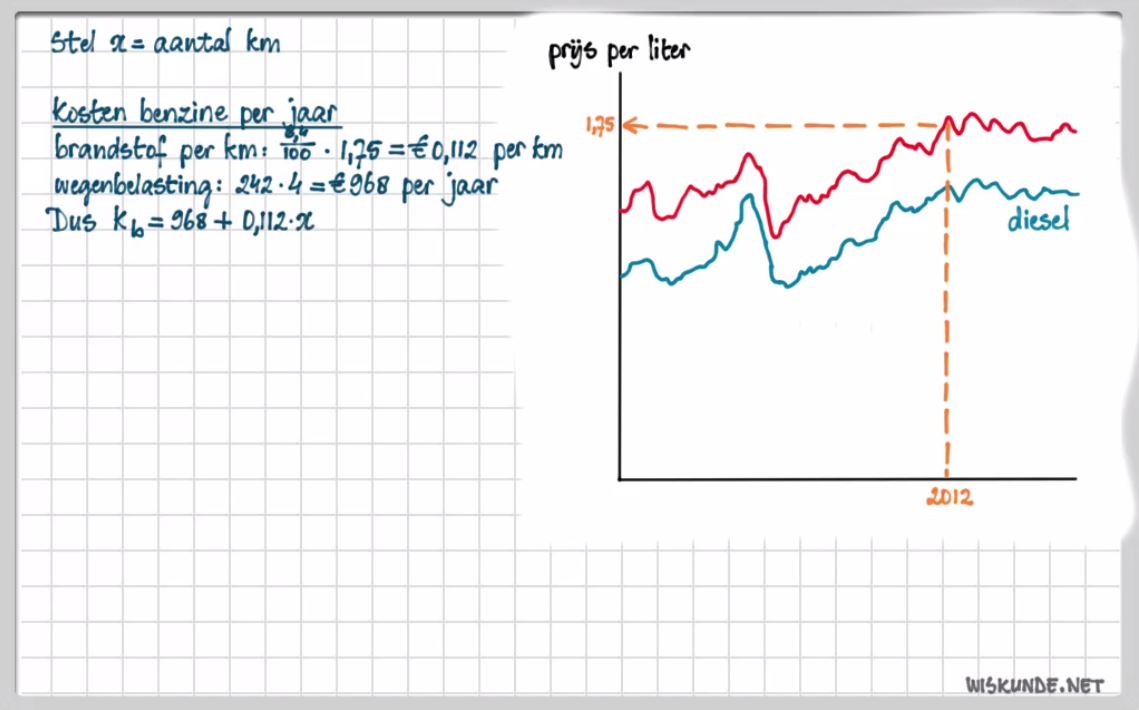 Stel x = aantal km
Kosten benzine per jaar
brandstof per km: 6,4/100 · 1,75 = € 0,112 per km
wegenbelasting: 242 · 4 = € 968 per jaar
Dus K_b = 968 + 0,112 · x
prijs per liter
1,75
diesel
2012
WISKUNDE.NET